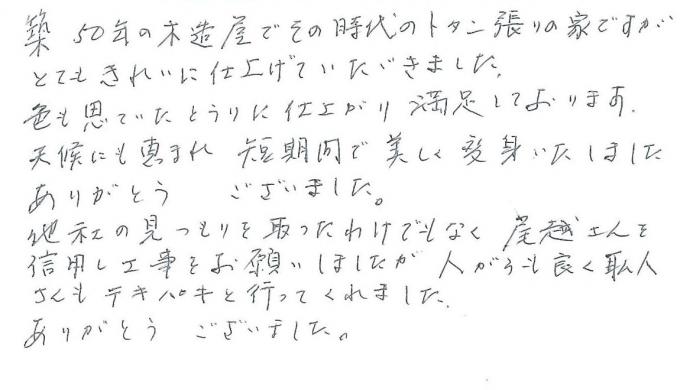 築 50年の木造屋でその時代のトタン張りの家ですが
とてもきれいに仕上げていただきました。
色も思ていたとうりに仕上がり 満足しております。
天候にも恵まれ 短期間で美しく変身いたしました
ありがとう ございました。
他社の見つもりを取ったわけでもなく 尾越さんを
信用し工事をお願いしましたが 人がらも良く職人
さんもテキパキと行ってくれました。
ありがとう ございました。